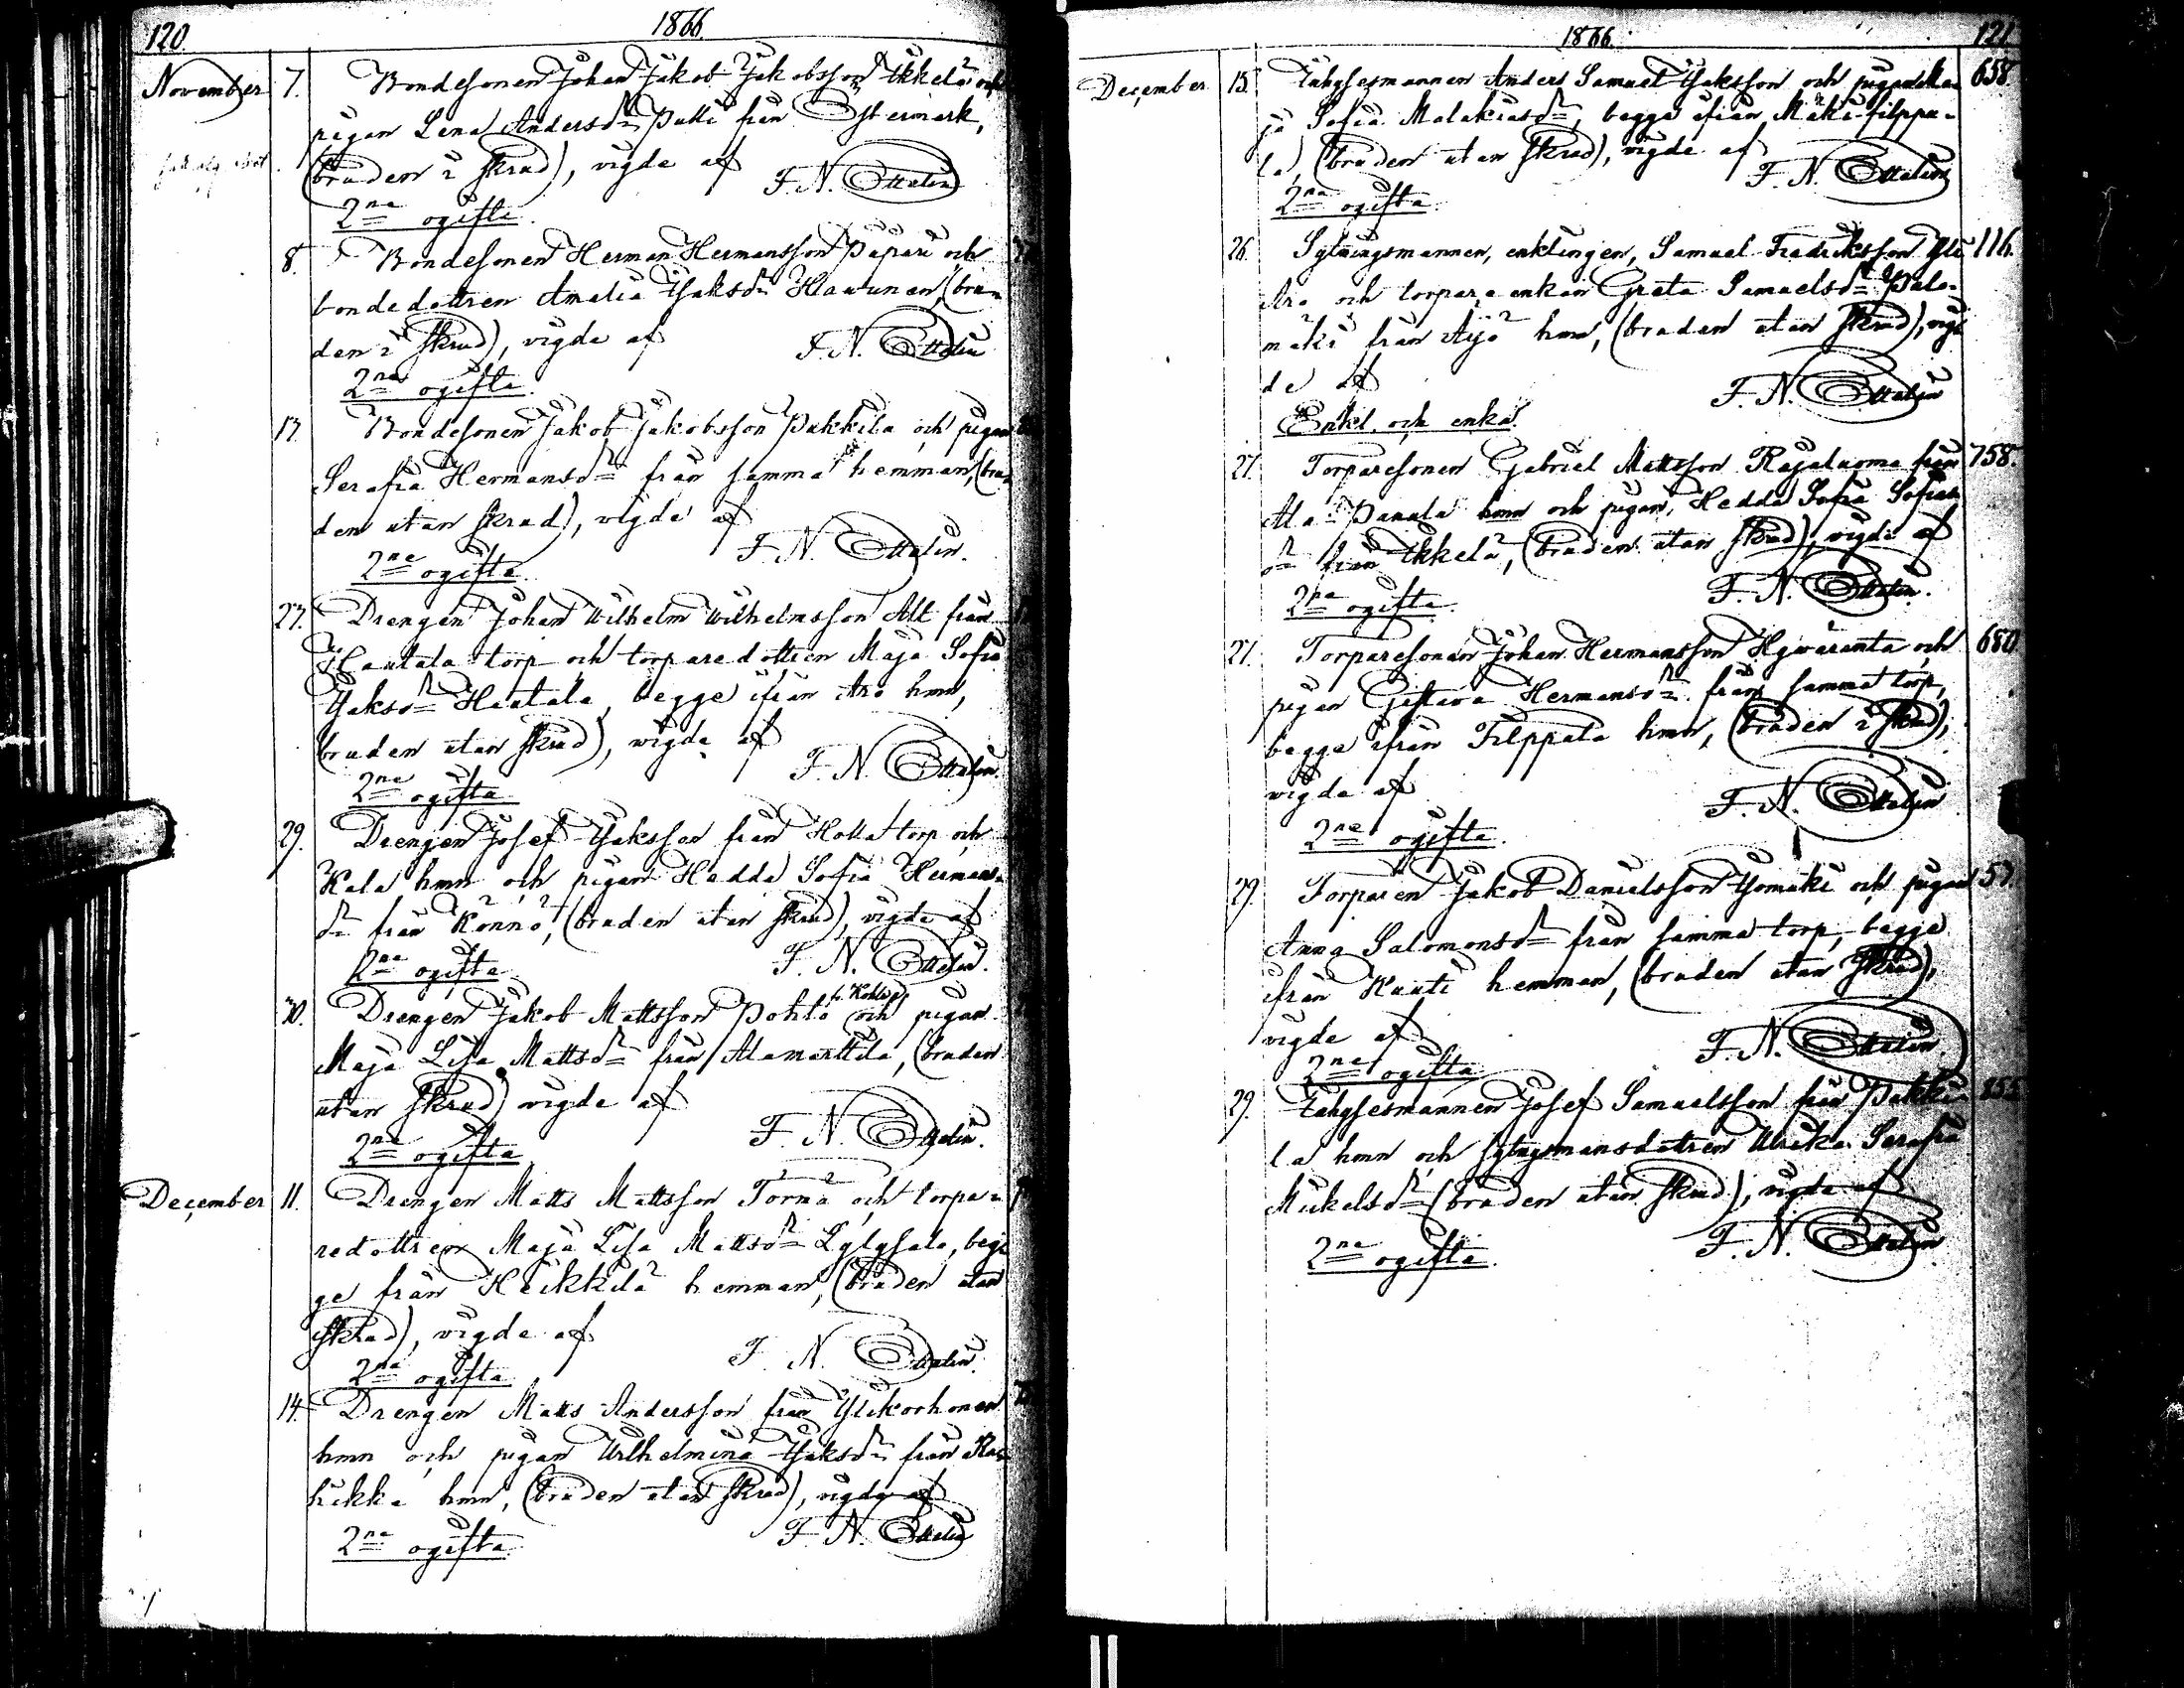 120. 1866.
November 7. Bondesonen Johan Jakob Jakobsson Ikkelä och
pigan Lena Andersd:r Putti från Östermark,
(bruden i skrud), vigde af F. N. Ottelin
2ne ogifta.
8. Bondesonen Herman Hermansson Päpäri och
bondedottren Amalia Isaksd:r Hautunen, (bru=
den i skrud), vigde af F. N. Ottelin
2ne ogifta.
13. Bondesonen Jakob Jakobsson Pukkila och pigan
Serafia Hermansd:r från samma hemman, (bru=
den utan skrud), vigde af
F. N. Ottelin.
2ne ogifta.
23. Drengen Johan Wilhelm Wilhelmsson Alt från
Hautala torp och torparedottren Maja Sofia
Isaksd:r Hautala, begge ifrån Aro hmn,
(bruden utan skrud), vigde af
F. N. Ottelin.
2ne ogifta
29. Drengen Josef Isaksson från torp och
Kala hmn och pigan Hedda Sofia Hermans=
d:r från Könnö, (bruden utan skrud), vigde af
F. N. Ottelin.
2ne ogifta
30. Drengen Jakob Mattsson Pohto och pigan
Maja Lisa Mattsd:r från Alamarttila, (bruden
utan skrud) vigde af
F. N. Ottelin.
2ne ogifta
December 11. Drengen Matts Mattsson Törmä och torpa=
redottren Maja Lisa Mattsd:r Lylysalo, beg=
ge från Heikkilä hemman, (bruden utan
skrud), vigde af
F. N. Ottelin.
2ne ogifta
14. Drengen Matts Andersson från Ylikorhonen
hmn och pigan Wilhelmina Isaksd:r från Ra=
hikka hmn, (bruden utan skrud), vigde af
F. N. Ottelin
2ne ogifta
1866. 121.
December 15. Inhysesmannen Anders Samuel Isaksson och pigan Ma= 658.
ja Sofia Malakiasd:r, begge ifrån Mäki-filppu=
la, (bruden utan skrud), vigde af
F. N. Ottelin
2ne ogifta.
26. Sytningsmannen, enklingen, Samuel Fredriksson Yli 116.
Aro och torpare enkan Greta Samuelsd:r Palo=
mäki från Äijö hmn, (bruden utan skrud), vig=
de af F. N. Ottelin
Enkl. och enka.
27. Torparesonen Gabriel Mattsson Rajaluoma från 758.
Ala-Panula hmn och pigan, Hedda Sofia Sofias
d:r från Ikkelä, (bruden utan skrud), vigde af
F. N. Ottelin.
2ne ogifta.
27. Torparesonen Johan Hermansson Hyväranta och 680.
pigan Gustava Hermansd:r från samma torp,
begge ifrån Filppula hmn, (bruden i skrud),
vigde af F. N. Ottelin
2ne ogifta.
29. Torparen Jakob Danielsson Isomäki och pigan 57.
Anna Salomonsd:r från samma torp, begge
ifrån Knuuti hemman, (bruden utan skrud),
vigde af F. N. Ottelin.
2ne ogifta
29. Inhysesmannen Josef Samuelsson från Pukki= 855
la hmn och sytngsmansdottren Ulrika Serafia
Mickelsd:r (bruden utan skrud), vigde af
F. N. Ottelin
2ne ogifta.